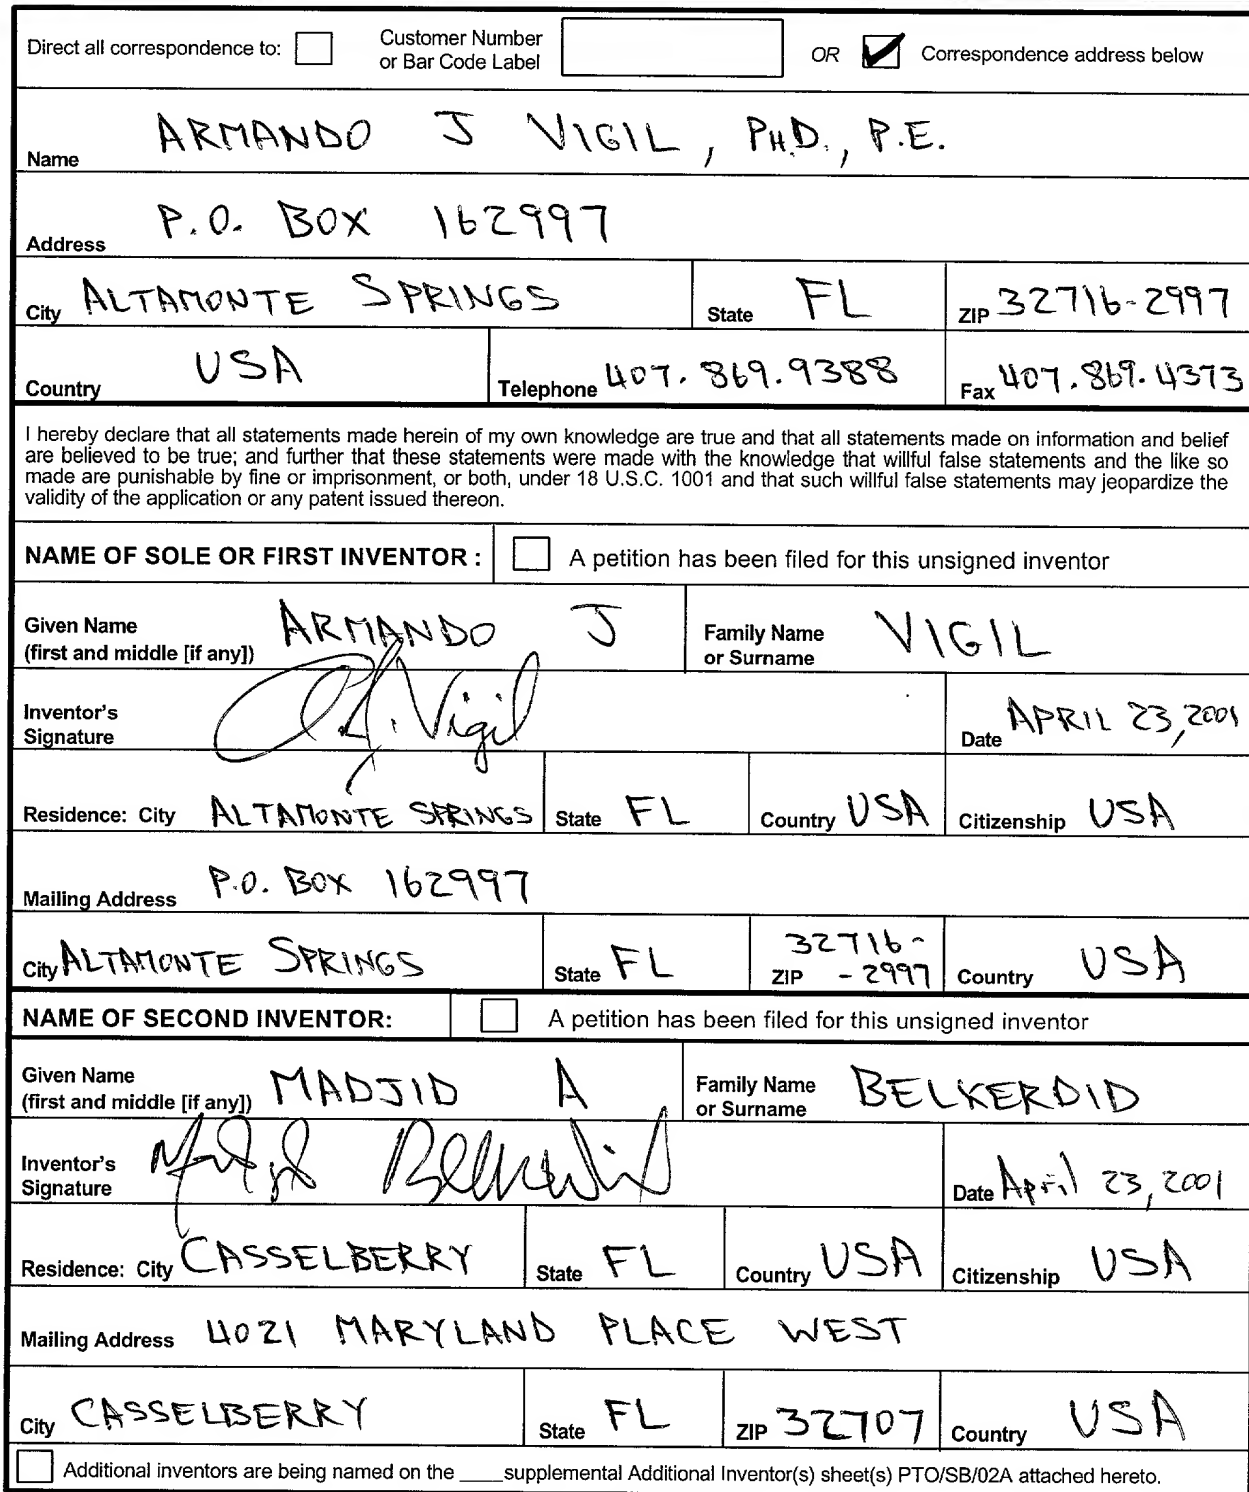 Direct all correspondence to: Customer Number or Bar Code Label OR Correspondence address below
Name ARMANDO J VIGIL, PH.D., P.E.
Address P.O. BOX 162997
City ALTAMONTE SPRINGS State FL ZIP 32716-2997
Country USA Telephone 407.869.9388 Fax 407.869.4373
I hereby declare that all statements made herein of my own knowledge are true and that all statements made on information and belief
are believed to be true; and further that these statements were made with the knowledge that willful false statements and the like so
made are punishable by fine or imprisonment, or both, under 18 U.S.C. 1001 and that such willful false statements may jeopardize the
validity of the application or any patent issued thereon.
NAME OF SOLE OR FIRST INVENTOR : A petition has been filed for this unsigned inventor
Given Name (first and middle [if any]) ARMANDO J Family Name or Surname VIGIL
Inventor's Signature A. J. Vigil Date APRIL 23, 2001
Residence: City ALTAMONTE SPRINGS State FL Country USA Citizenship USA
Mailing Address P.O. BOX 162997
City ALTAMONTE SPRINGS State FL ZIP 32716- -2997 Country USA
NAME OF SECOND INVENTOR: A petition has been filed for this unsigned inventor
Given Name (first and middle [if any]) MADJID A Family Name or Surname BELKERDID
Inventor's Signature Madjid Belkerdid Date April 23, 2001
Residence: City CASSELBERRY State FL Country USA Citizenship USA
Mailing Address 4021 MARYLAND PLACE WEST
City CASSELBERRY State FL ZIP 32707 Country USA
Additional inventors are being named on the ____supplemental Additional Inventor(s) sheet(s) PTO/SB/02A attached hereto.